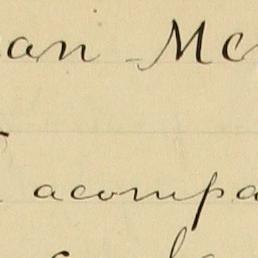 an Mc
acompa